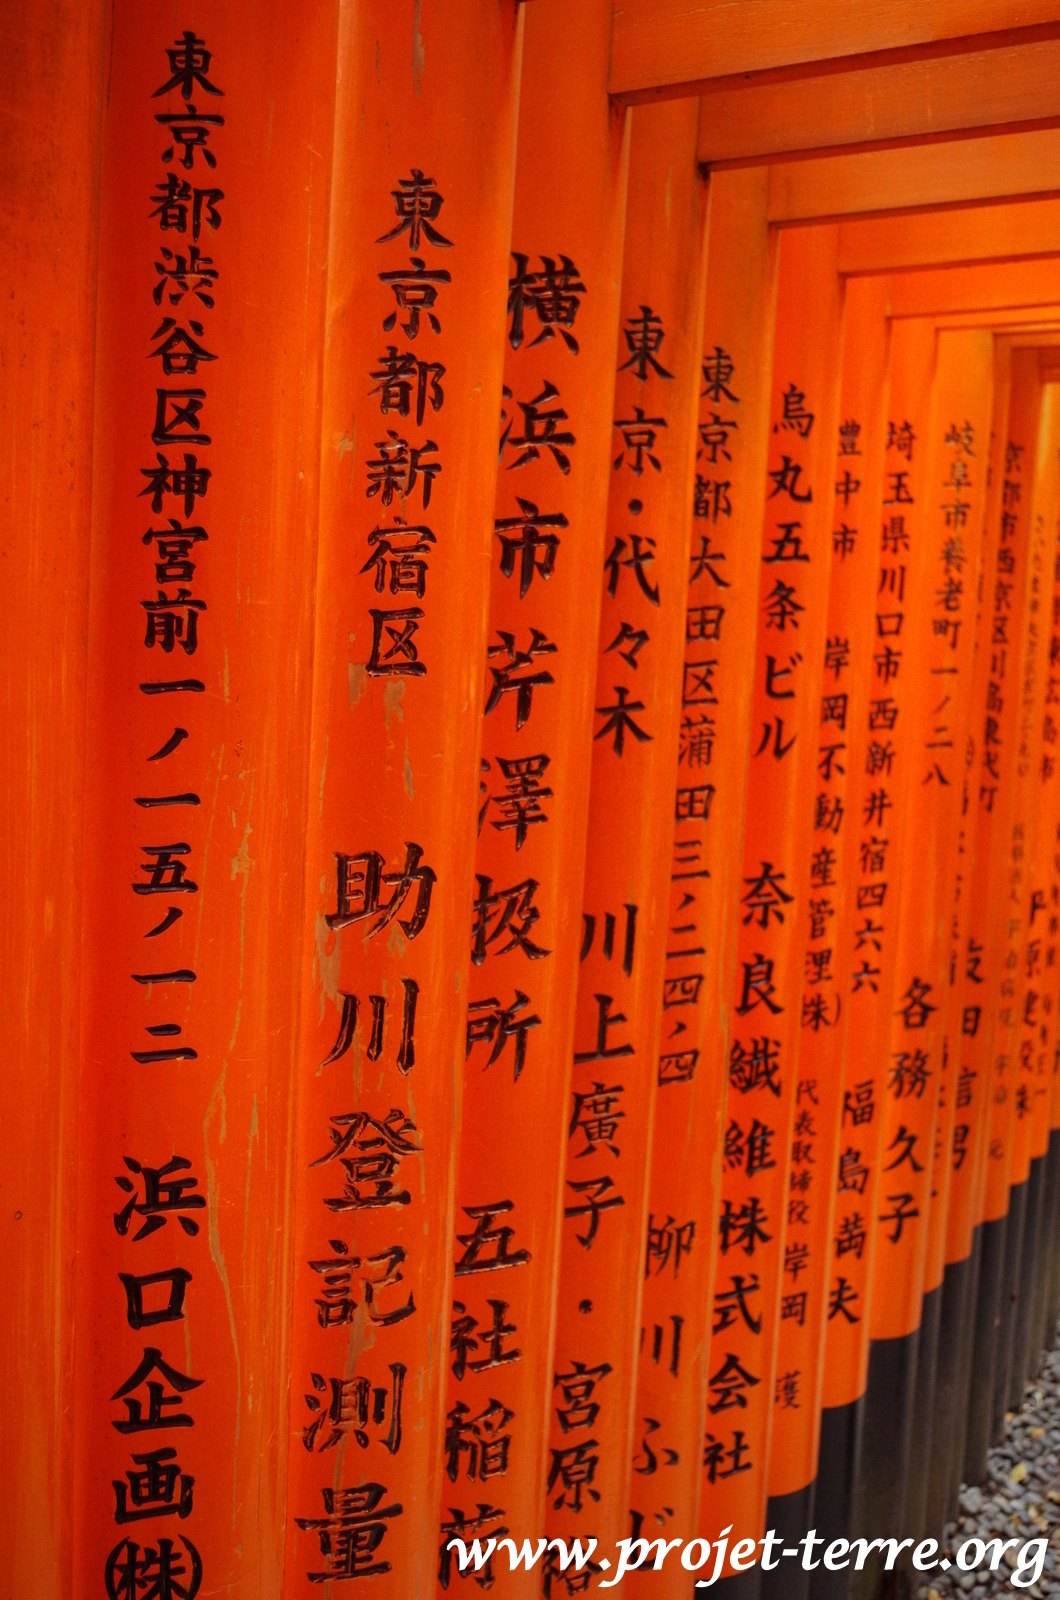 東京都渋谷区神宮前一ノ一五ノ一二 浜口企画㈱
東京都新宿区 助川登記測量
横浜市芹澤扱所 五社稲荷
東京・代々木 川上廣子・宮原裕
東京都大田区蒲田三ノ二四ノ四 柳川ふど
烏丸五条ビル 奈良繊維株式会社
豊中市 岸岡不動産管理(株) 代表取締役 岸岡 護
埼玉県川口市西新井宿四六六 福島茜夫
岐阜市養老町一ノ二八 各務久子
京都市西京区川島東代町
友田信男
戸原建设
www.projet-terre.org